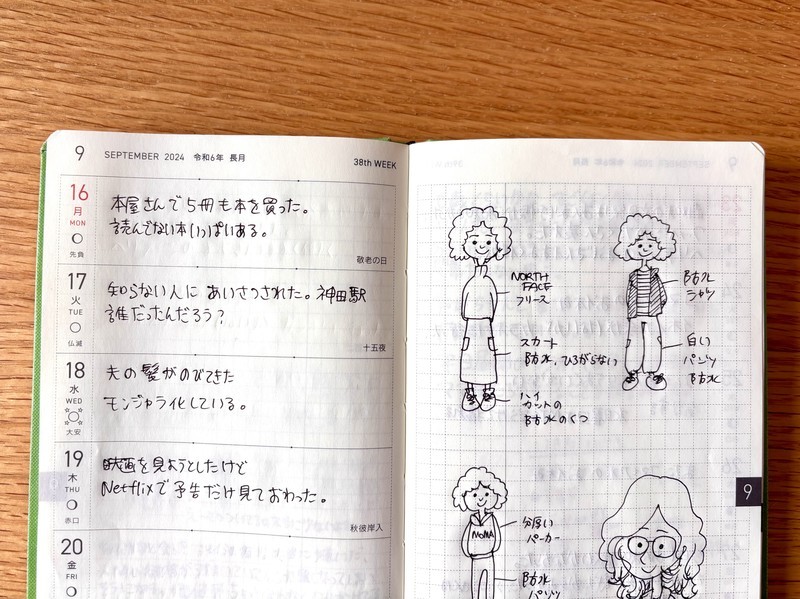 9 SEPTEMBER 2024 令和6年 長月 38th WEEK
16 月 MON 先負
本屋さんで5冊も本を買った。
読んでない本いっぱいある。
敬老の日
17 火 TUE 仏滅
知らない人にあいさつされた。神田駅
誰だったんだろう?
十五夜
18 水 WED 大安
夫の髪がのびてきた
モンジャラ化している。
19 木 THU 赤口
映画を見ようとしたけど
Netflixで予告だけ見ておわった。
秋彼岸入
20 金 FRI
NORTH
FACE
フリース
スカート
防水、ひろがらない
ハイ
カットの
防水のくつ
防水
シャツ
白い
パンツ
防水
9
MoMA
分厚い
パーカー
防水
パンツ